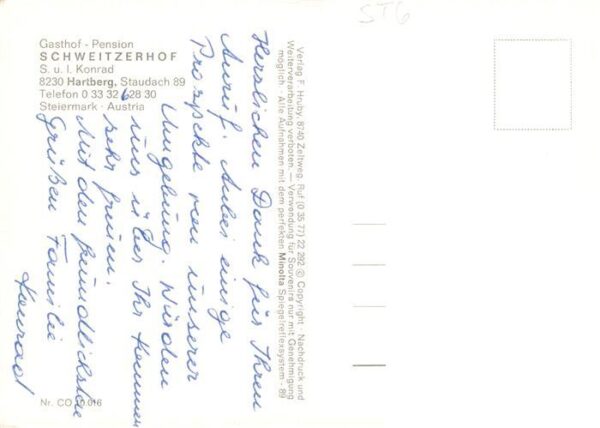 ST6
Gasthof - Pension
SCHWEITZERHOF
S. u. I. Konrad
8230 Hartberg, Staudach 89
Telefon 0 33 32 28 30
Steiermark · Austria
Herzlichen Dank für Ihren
Anruf. Anbei einige
Prospekte von unserer
Umgebung. Würden
uns über Ihr Kommen
sehr freuen.
Mit den freundlichsten
Grüßen Familie
Konrad
Verlag F. Hruby, 8740 Zeltweg, Ruf (0 35 77) 22 292 © Copyright · Nachdruck und
Weiterverarbeitung verboten. — Verwendung für Souvenirs nur mit Genehmigung
möglich · Alle Aufnahmen mit dem perfekten Minolta Spiegelreflexsystem · 89
Nr. CO 10 016